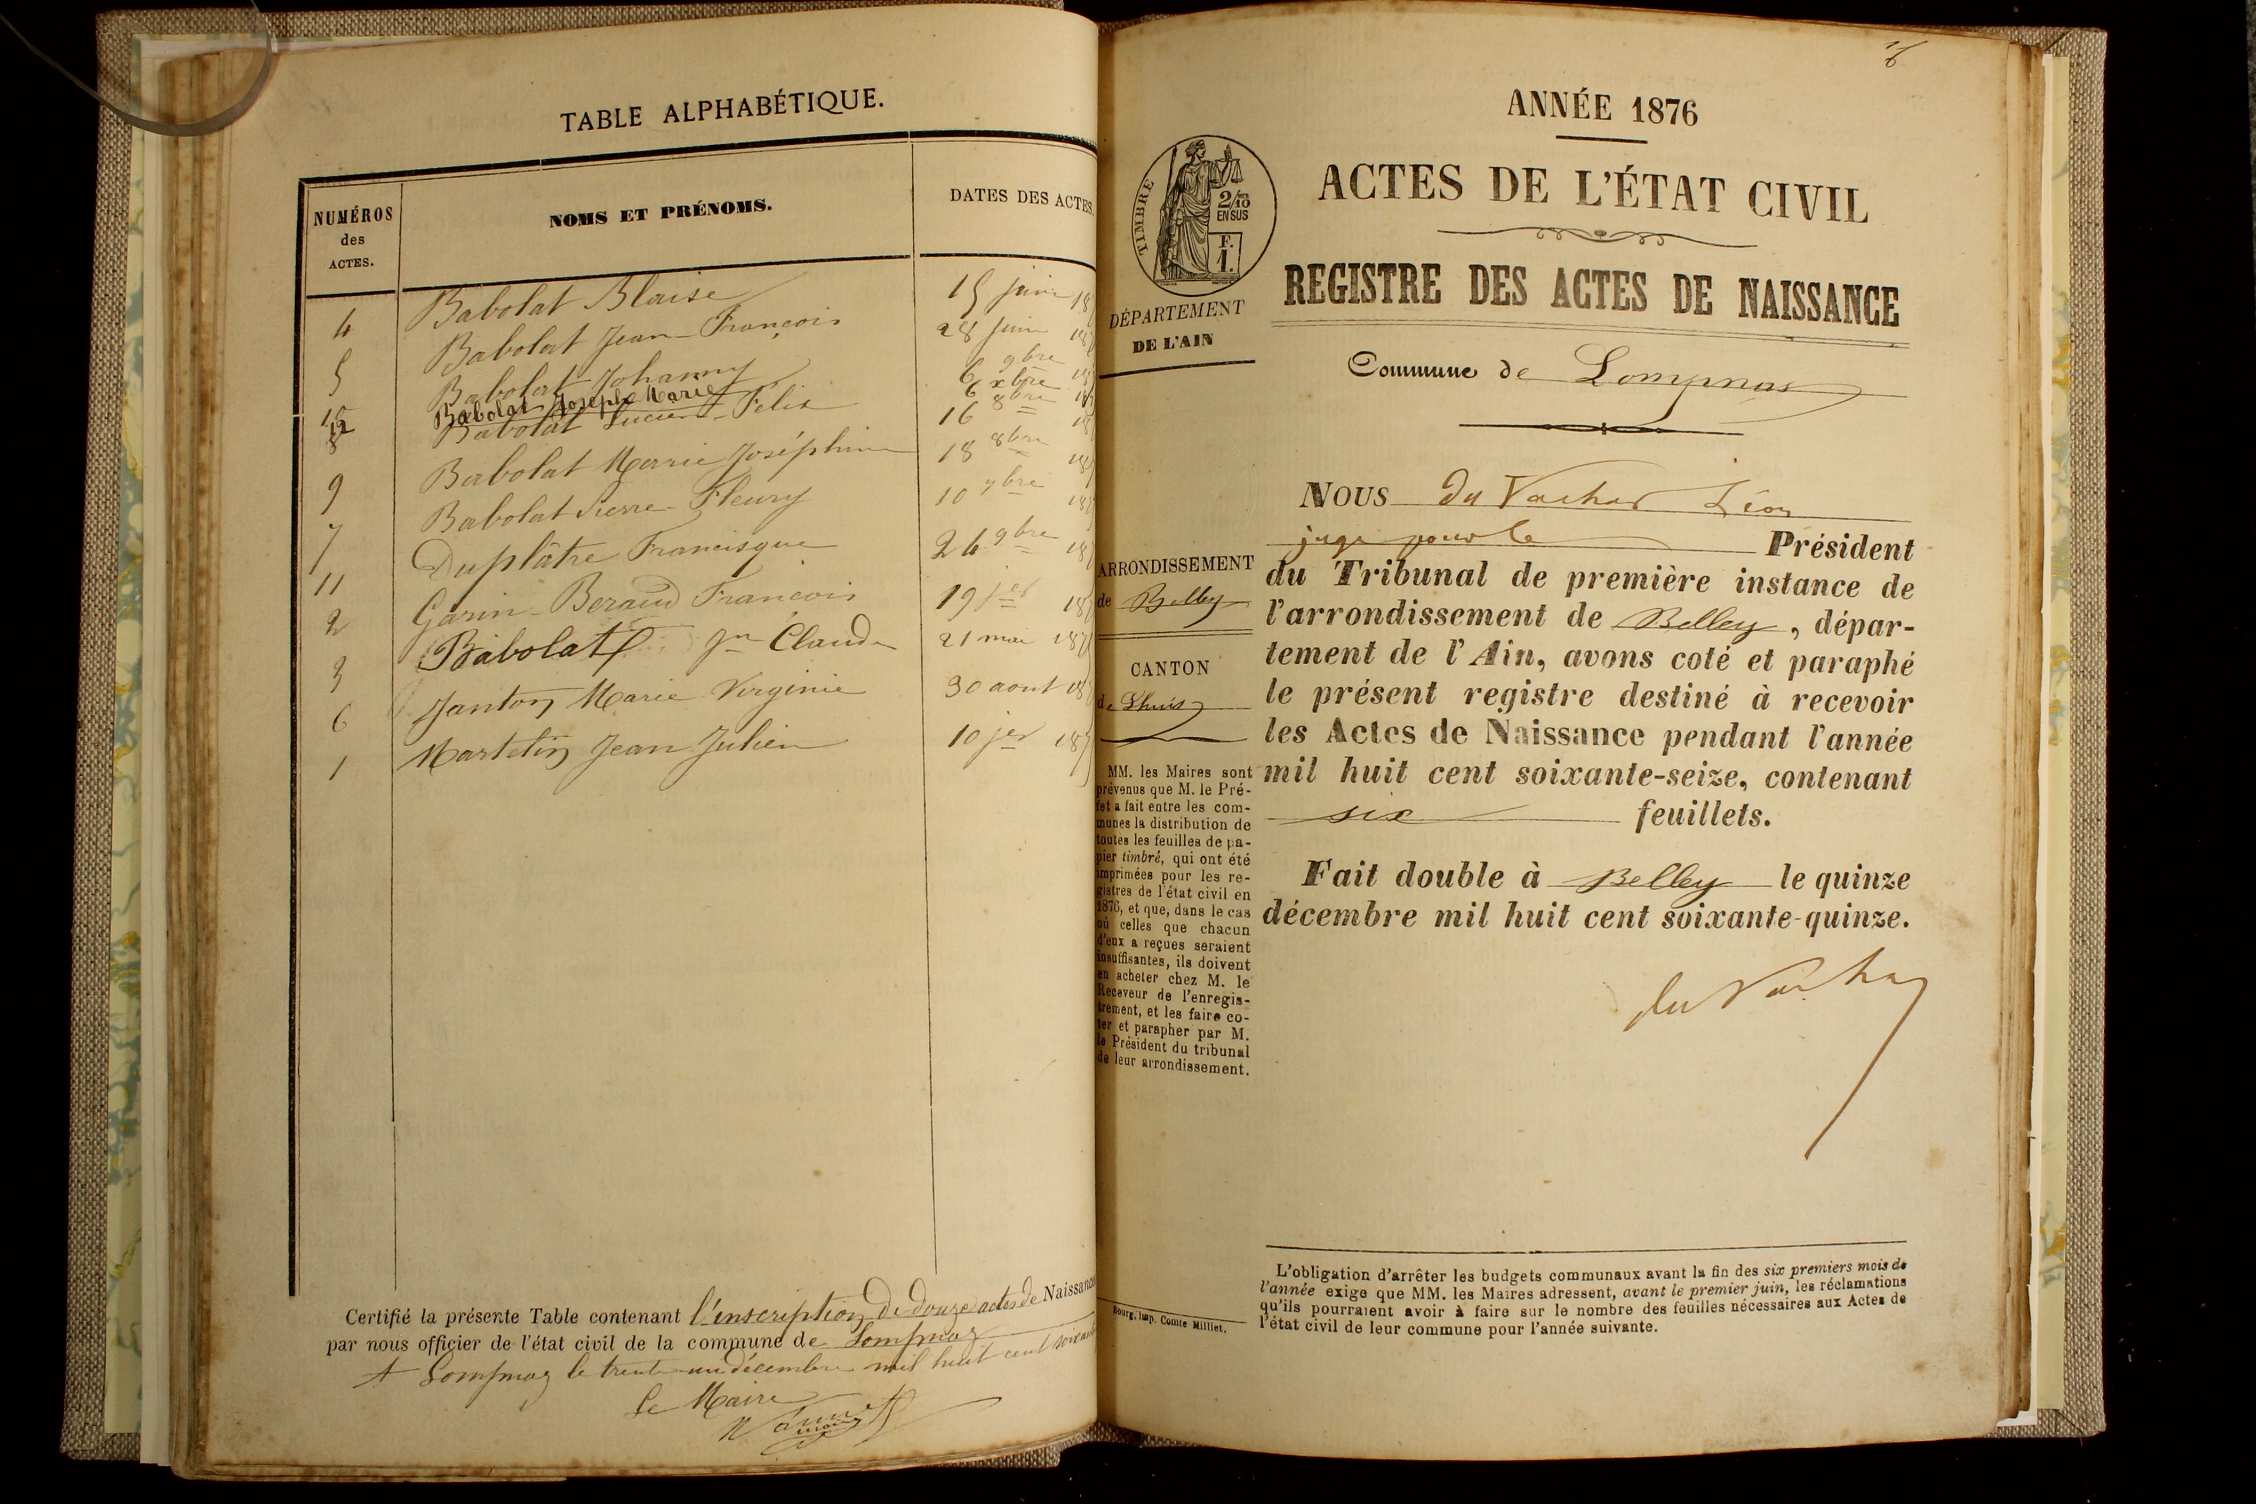 TABLE ALPHABÉTIQUE.
NUMÉROS
des
ACTES.
NOMS ET PRÉNOMS.
DATES DES ACTES.
4 Babolat Blaise 15 juin 18
5 Babolat Jean-François 28 juin 18
Babolat Johanny 6 9bre 18
12 Babolat Joseph Marie 6 xbre 18
8 Babolat Lucien-Félix 16 8bre 18
9 Babolat Marie Joséphine 18 8bre 18
7 Babolat Pierre Fleury 10 7bre 18
11 Duplâtre Francisque 24 9bre 18
2 Garin-Beraud François 19 jer 18
3 Babolat Jn Claude 21 mai 187
6 Janton Marie Virginie 30 aout 18
1 Martelin Jean Julien 10 jer 187
Certifié la présente Table contenant l'inscription de douze actes de Naissance
par nous officier de l'état civil de la commune de Lompnaz
A Lompnaz le trente un décembre mil huit cent soixante
Le Maire
ANNÉE 1876
ACTES DE L'ÉTAT CIVIL
REGISTRE DES ACTES DE NAISSANCE
Commune de Lompnas
TIMBRE
2/10
EN SUS
F.
1.
DÉPARTEMENT
DE L'AIN
ARRONDISSEMENT
de Belley
CANTON
de Lhuis
MM. les Maires sont
prévenus que M. le Pré-
fet a fait entre les com-
munes la distribution de
toutes les feuilles de pa-
pier timbré, qui ont été
imprimées pour les re-
gistres de l'état civil en
1876, et que, dans le cas
où celles que chacun
d'eux a reçues seraient
insuffisantes, ils doivent
en acheter chez M. le
Receveur de l'enregis-
trement, et les faire co-
ter et parapher par M.
le Président du tribunal
de leur arrondissement.
Bourg, Imp. Comte Milliet.
NOUS du Vachat Léon
juge pour le Président
du Tribunal de première instance de
l'arrondissement de Belley, dépar-
tement de l'Ain, avons coté et paraphé
le présent registre destiné à recevoir
les Actes de Naissance pendant l'année
mil huit cent soixante-seize, contenant
six feuillets.
Fait double à Belley le quinze
décembre mil huit cent soixante-quinze.
du Vachat
L'obligation d'arrêter les budgets communaux avant la fin des six premiers mois de
l'année exige que MM. les Maires adressent, avant le premier juin, les réclamations
qu'ils pourraient avoir à faire sur le nombre des feuilles nécessaires aux Actes de
l'état civil de leur commune pour l'année suivante.